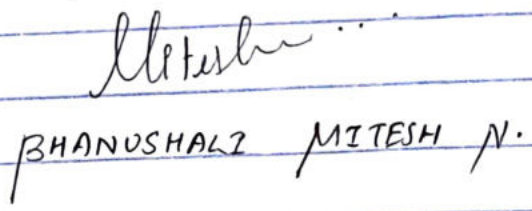 Mitesh...
BHANUSHALI MITESH N.